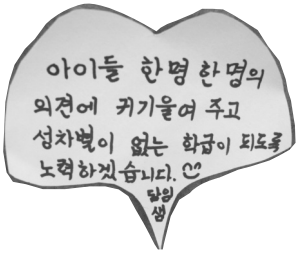 아이들 한명 한명의
의견에 귀기울여 주고
성차별이 없는 학급이 되도록
노력하겠습니다.
담임
샘